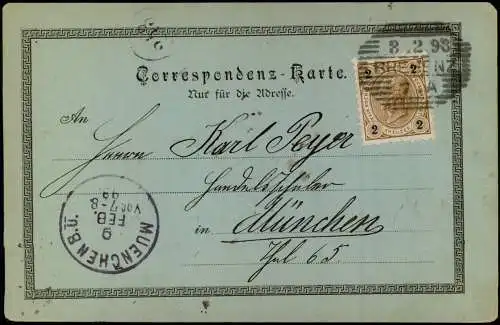 8 .2 98
BREGENZ
A
2 2
2 2
Correspondenz-Karte.
Nur für die Adresse.
An
Herrn Karl Peyer
Handelsschüler
in München
Thal 65.
MUENCHEN B.
9
FEB.
Vor 7-8
98